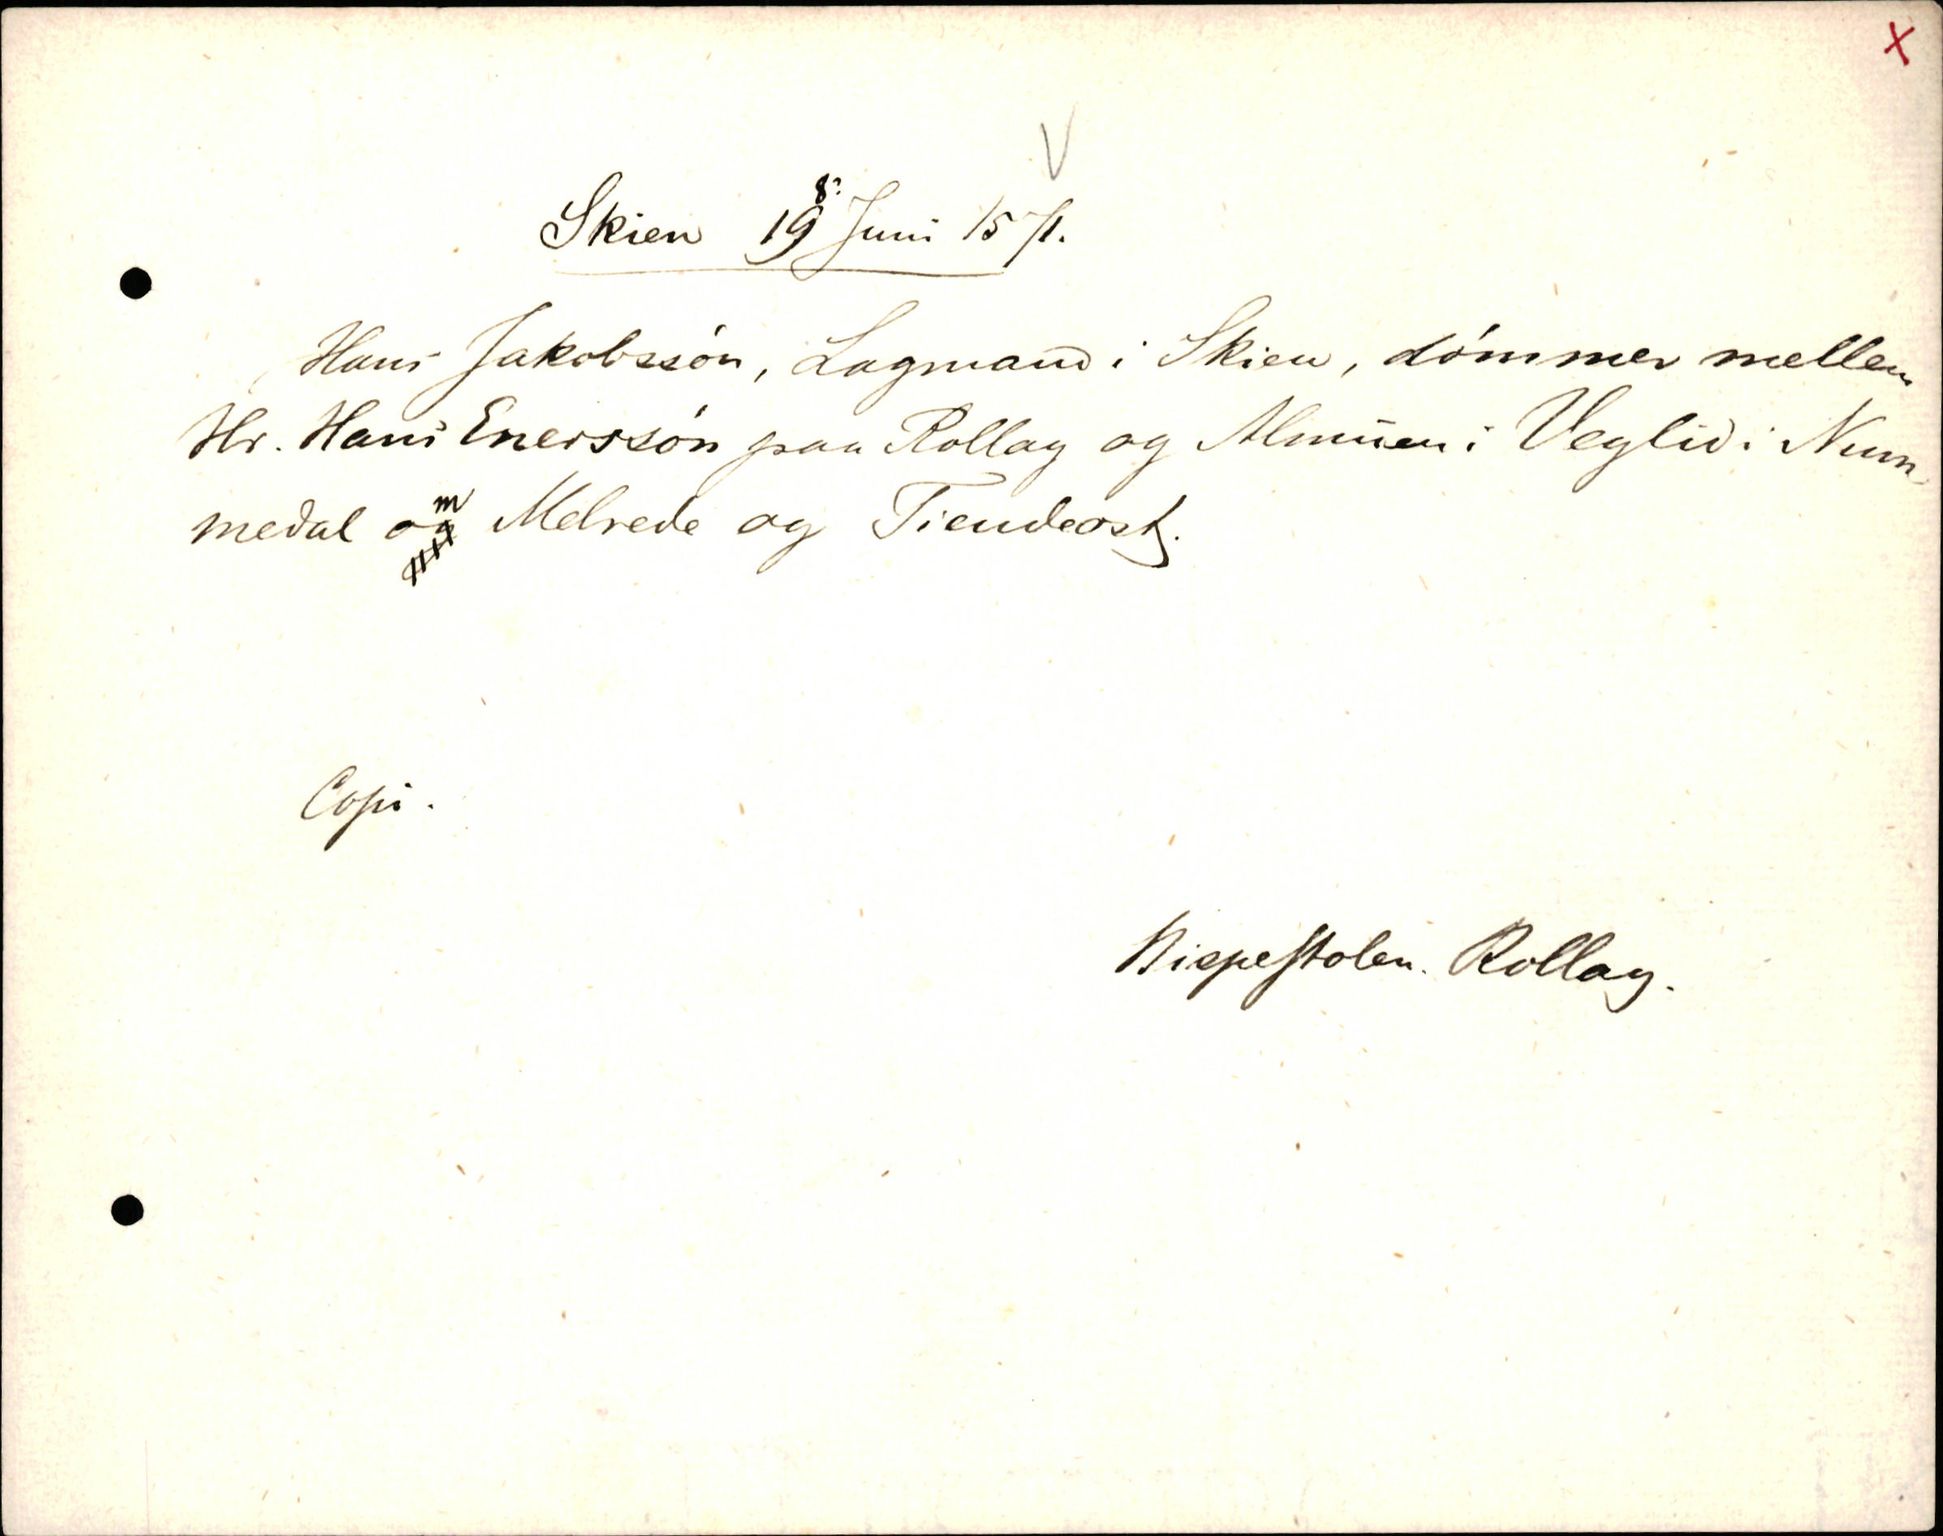 X
V
Skien 19 8. Juni 1571.
Hans Jakobssön, Lagmand i Skien, dömmer mellem
Hr. Hans Enerssön paa Rollag og Almuen i Veglid i Num-
medal om Melrede og Tiendeost.
Copi.
Bispestolen. Rollag.